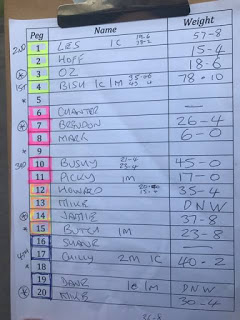 Peg Name Weight
2ND 1 LES 1C 57-8
2 HOPF 15-4
3 OZ 18-6
1ST 4 BISH 1C 1M 78-10
* 5
6 CHANTER —
7 BRENDON 26-4
8 MARK 6-0
* 9
3RD 10 BUSHY 45-0
11 PICKY 1M 17-0
12 HOWARD 35-4
13 MIKE DNW
14 JAMIE 37-8
* 15 BUTCH 1M 23-8
16 —
4TH 17 CHILLY 2M 1C 40-2
* 18
19 DAVE DNW
20 MIKE 1C 1M 30-4